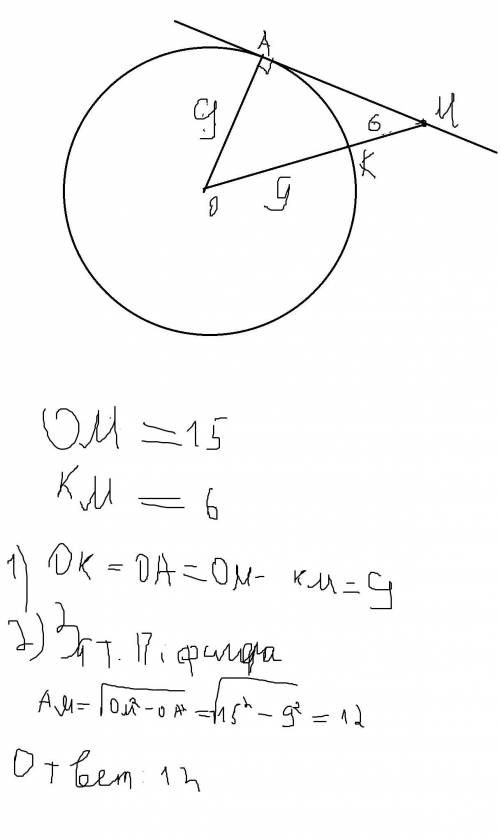 A
9
6
M
K
O
9
OM = 15
KM = 6
1) OK = OA = OM - KM = 9
2) За т. Піфагора
AM = √OM² - OA² = √15² - 9² = 12
Ответ: 12